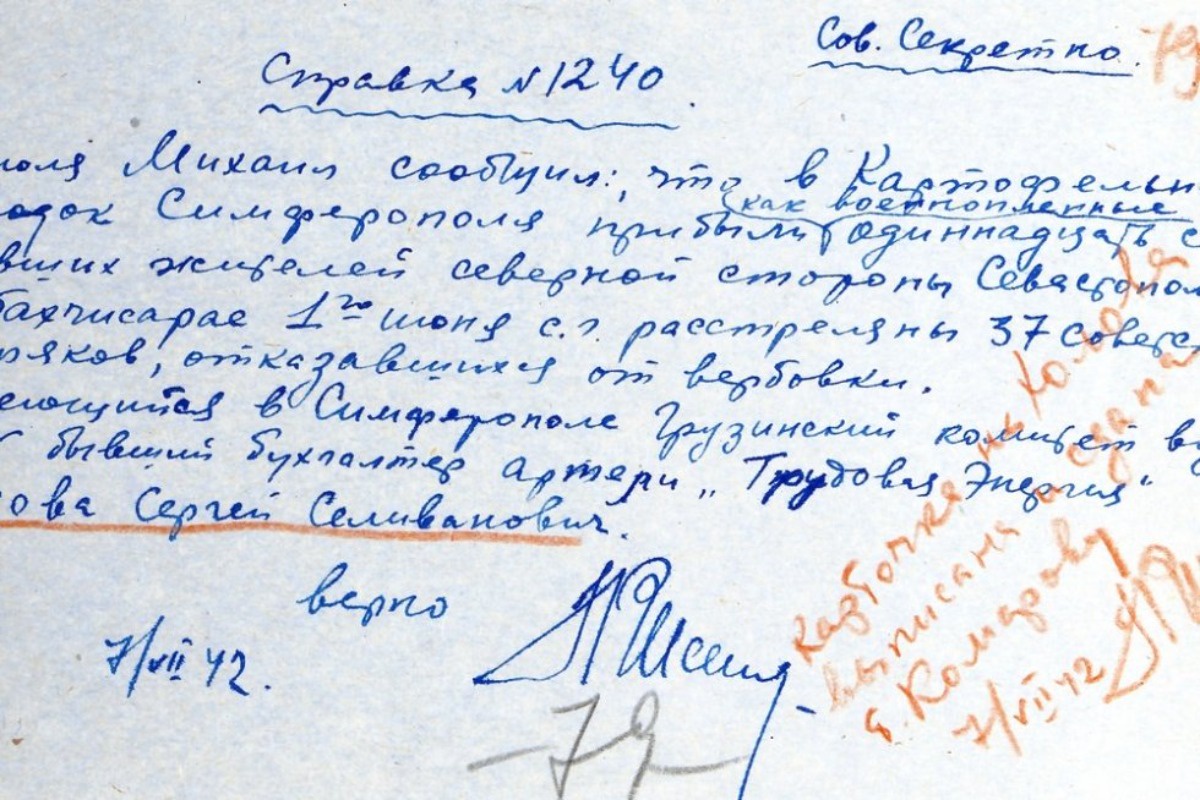 Сов. Секретно.
79
Справка N 1240.
поля Михаил сообщил:, что в Картофельн
как военнопленные
одок Симферополя прибыли одиннадцать с
вших жителей северной стороны Севастопол
бахчисарае 1го июня с.г. расстреляны 37 советс
ряков, отказавшихся от вербовки.
еющийся в Симферополе Грузинский комитет в
бывший бухгалтер артели „Трудовая Энергия"
ова Сергей Селиванович.
верно
7/VII 42.
79
Карточка на Холода
выписана и сдана
т. Комарову
7/VII 42